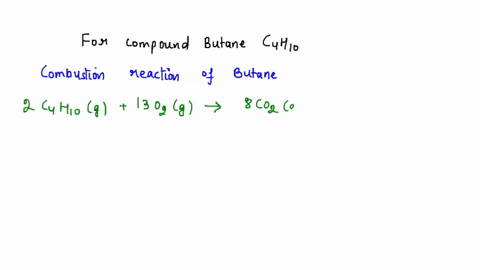 For compound Butane C₄H₁₀
Combustion reaction of Butane
2 C₄H₁₀ (g) + 13 O₂ (g) → 8CO₂ (